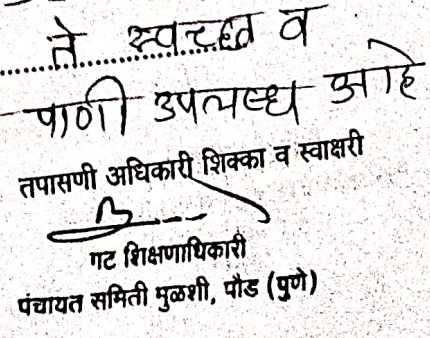 ते स्वच्छ व
पाणी उपलब्ध आहे
तपासणी अधिकारी शिक्का व स्वाक्षरी
गट शिक्षणाधिकारी
पंचायत समिती मुळशी, पौड (पुणे)